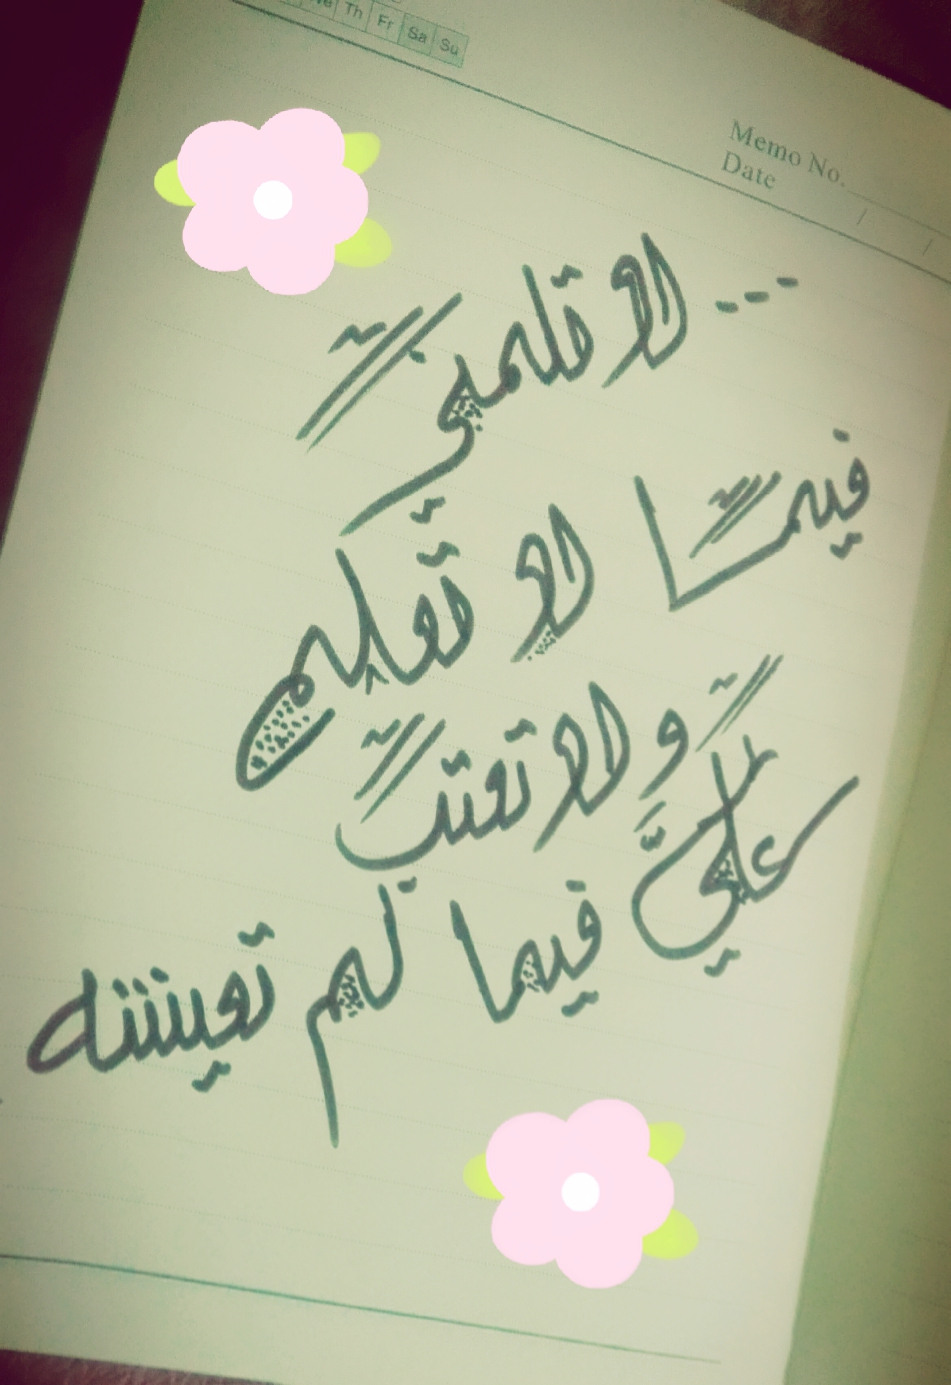 We Th Fr Sa Su
Memo No.
Date / /
... لا تلمني
فيما لا تعلم
ولا تعتب
عليَّ فيما لم تعيشه